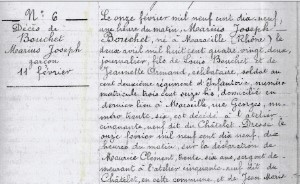 N° 6
Décès de
Bouchet
Marius Joseph
garçon
11 février
Le onze février mil neuf cent dix neuf,
une heure du matin, Marius Joseph
Bouchet, né à Marseille (Rhône) le
deux avril mil huit cent quatre vingt douze,
journalier, fils de Louis Bouchet et de
Jeannette Armand, célibataire, soldat au
cent douzième régiment d'infanterie numéro
matricule trois cent onze bis, domicilié en
dernier lieu à Marseille, rue Georges, nu-
méro trente six, est décédé à l'atelier
cinquante neuf dit du Châtelet. Dressé le
onze février mil neuf cent dix neuf, dix
heures du matin, sur la déclaration de
Maurice Clément, trente six ans, sergent de-
meurant à l'atelier cinquante neuf du
Châtelet, en cette commune, et de Jean Marie